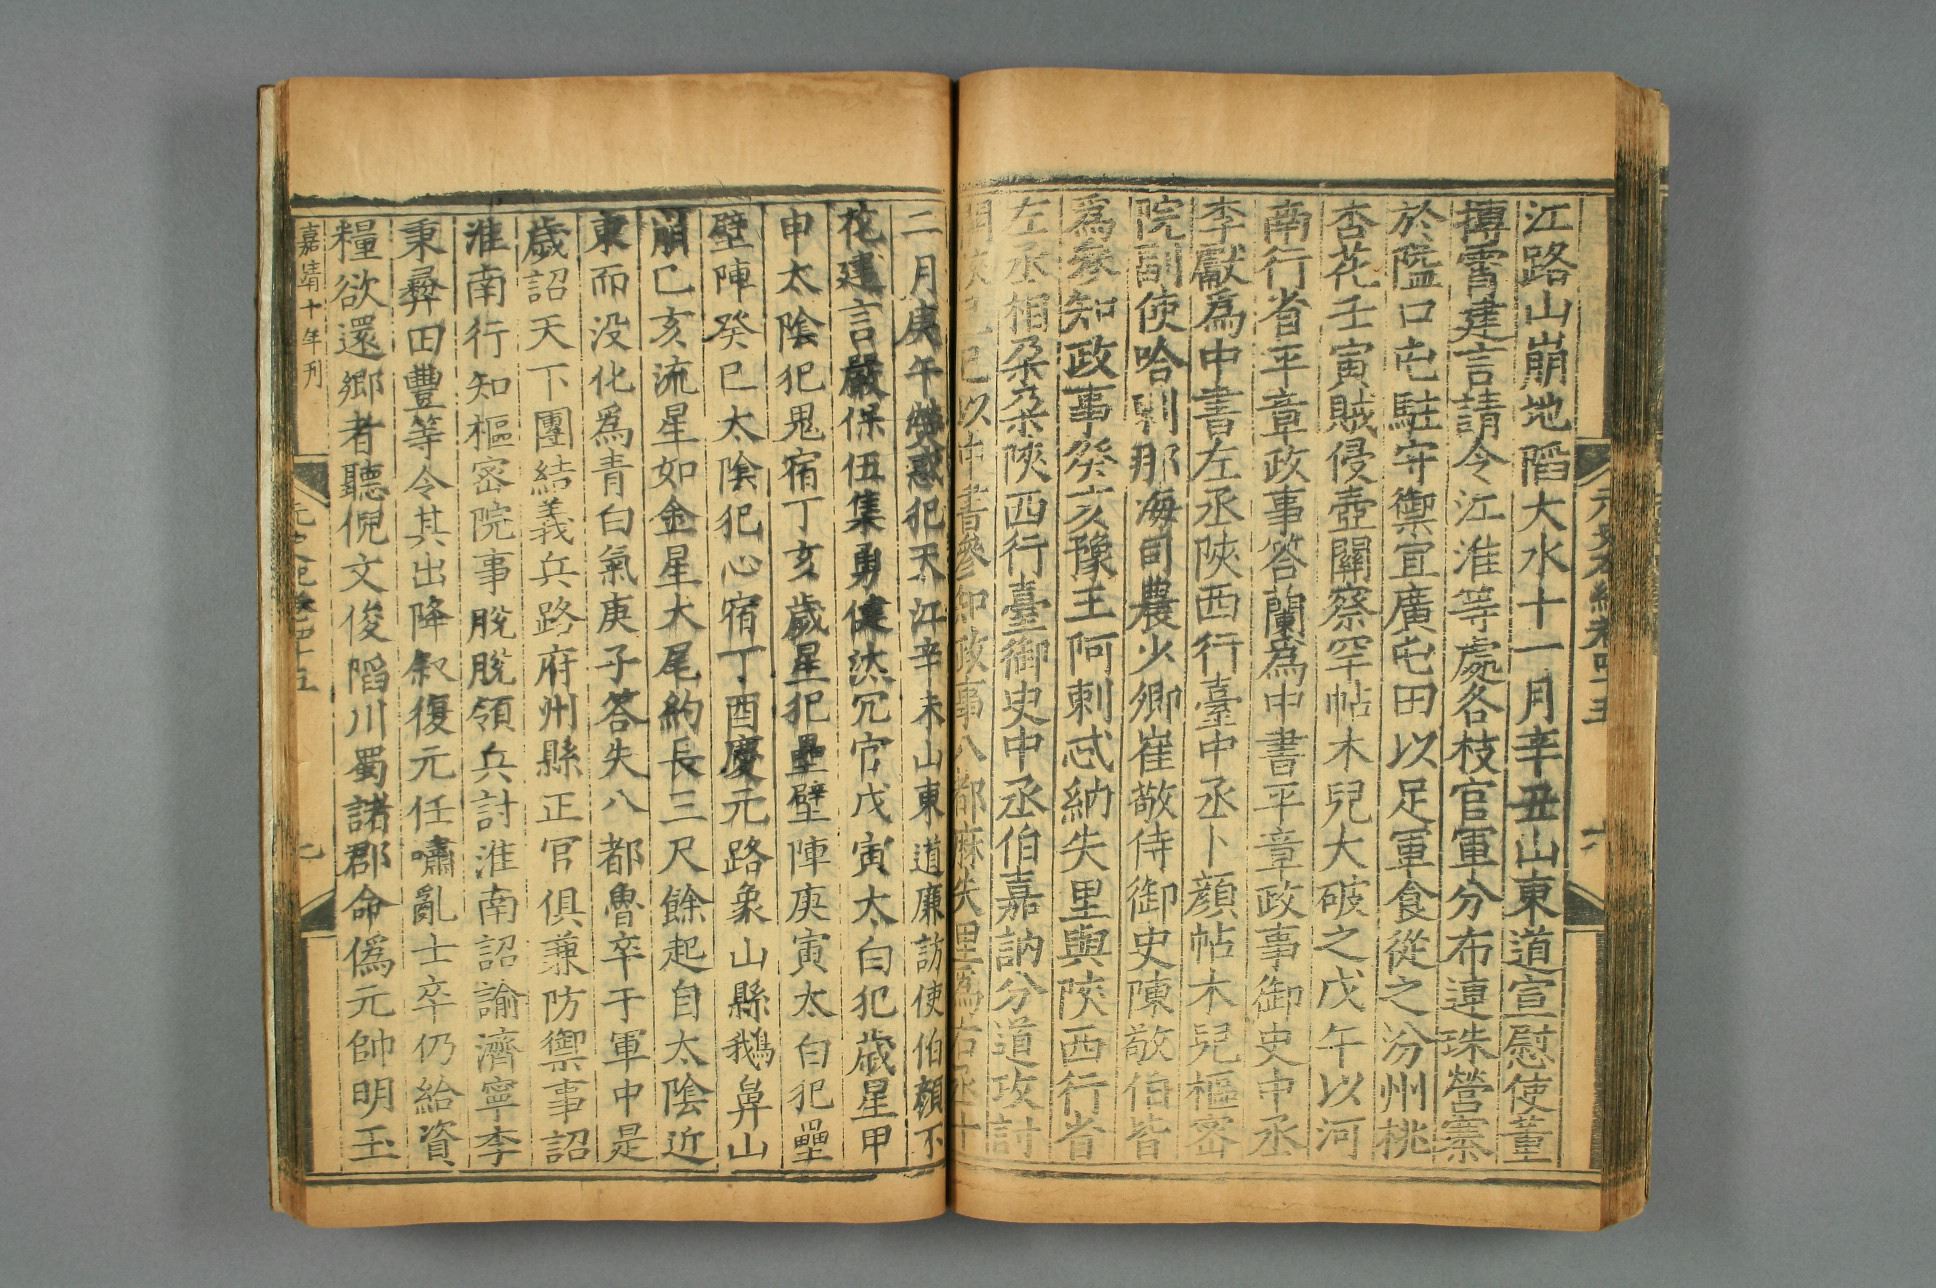 元史本紀卷四十五
江路山崩地䧟大水十一月辛丑山東道宣慰使董
搏霄建言請令江淮等處各枝官軍分布連珠營寨
於隘口屯駐守禦宜廣屯田以足軍食從之汾州桃
杏花壬寅賊侵壺關察罕帖木兒大破之戊午以河
南行省平章政事答蘭爲中書平章政事御史中丞
李獻爲中書左丞陝西行臺中丞卜顏帖木兒樞密
院副使哈剌那海司農少卿崔敬侍御史陳敬伯皆
爲參知政事癸亥豫王阿剌忒納失里與陝西行省
左丞相朶朶陝西行臺御史中丞伯嘉訥分道攻討
關陝己巳以中書參知政事八都麻失里爲右丞十
二月庚午熒惑犯天江辛未山東道廉訪使伯顏不
花建言嚴保伍集勇健汰冗官戊寅太白犯歲星甲
申太陰犯鬼宿丁亥歲星犯壘壁陣庚寅太白犯壘
壁陣癸巳太陰犯心宿丁酉慶元路象山縣鵝鼻山
崩己亥流星如金星大尾約長三尺餘起自太陰近
東而没化爲青白氣庚子答失八都魯卒于軍中是
歲詔天下團結義兵路府州縣正官俱兼防禦事詔
淮南行知樞密院事脫脫領兵討淮南詔諭濟寧李
秉彛田豐等令其出降叙復元任嘯亂士卒仍給資
糧欲還鄉者聽倪文俊䧟川蜀諸郡命僞元帥明玉
嘉靖十年刋
元史紀卷四十五
七